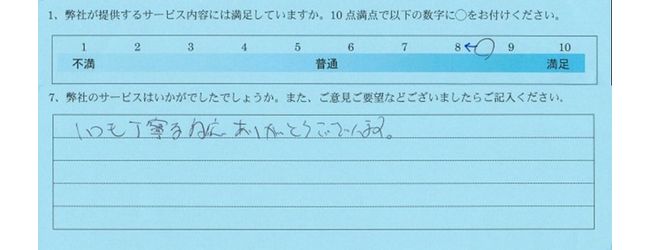 1、弊社が提供するサービス内容には満足していますか。10点満点で以下の数字に○をお付けください。
1 2 3 4 5 6 7 8 ←○ 9 10
不満 普通 満足
7、弊社のサービスはいかがでしたでしょうか。また、ご意見ご要望などございましたらご記入ください。
いつも丁寧な対応ありがとうございます。